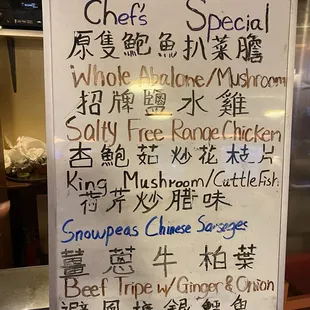 Chef's Special
原隻鮑魚扒菜膽
Whole Abalone/Mushroom
招牌鹽水雞
Salty Free Range Chicken
杏鮑茹炒花枝片
King Mushroom/Cuttle Fish
荷芹炒腊味
Snowpeas Chinese Sarsages
薑蔥牛柏葉
Beef Tripe w/ Ginger & Onion
避風塘銀鱈魚